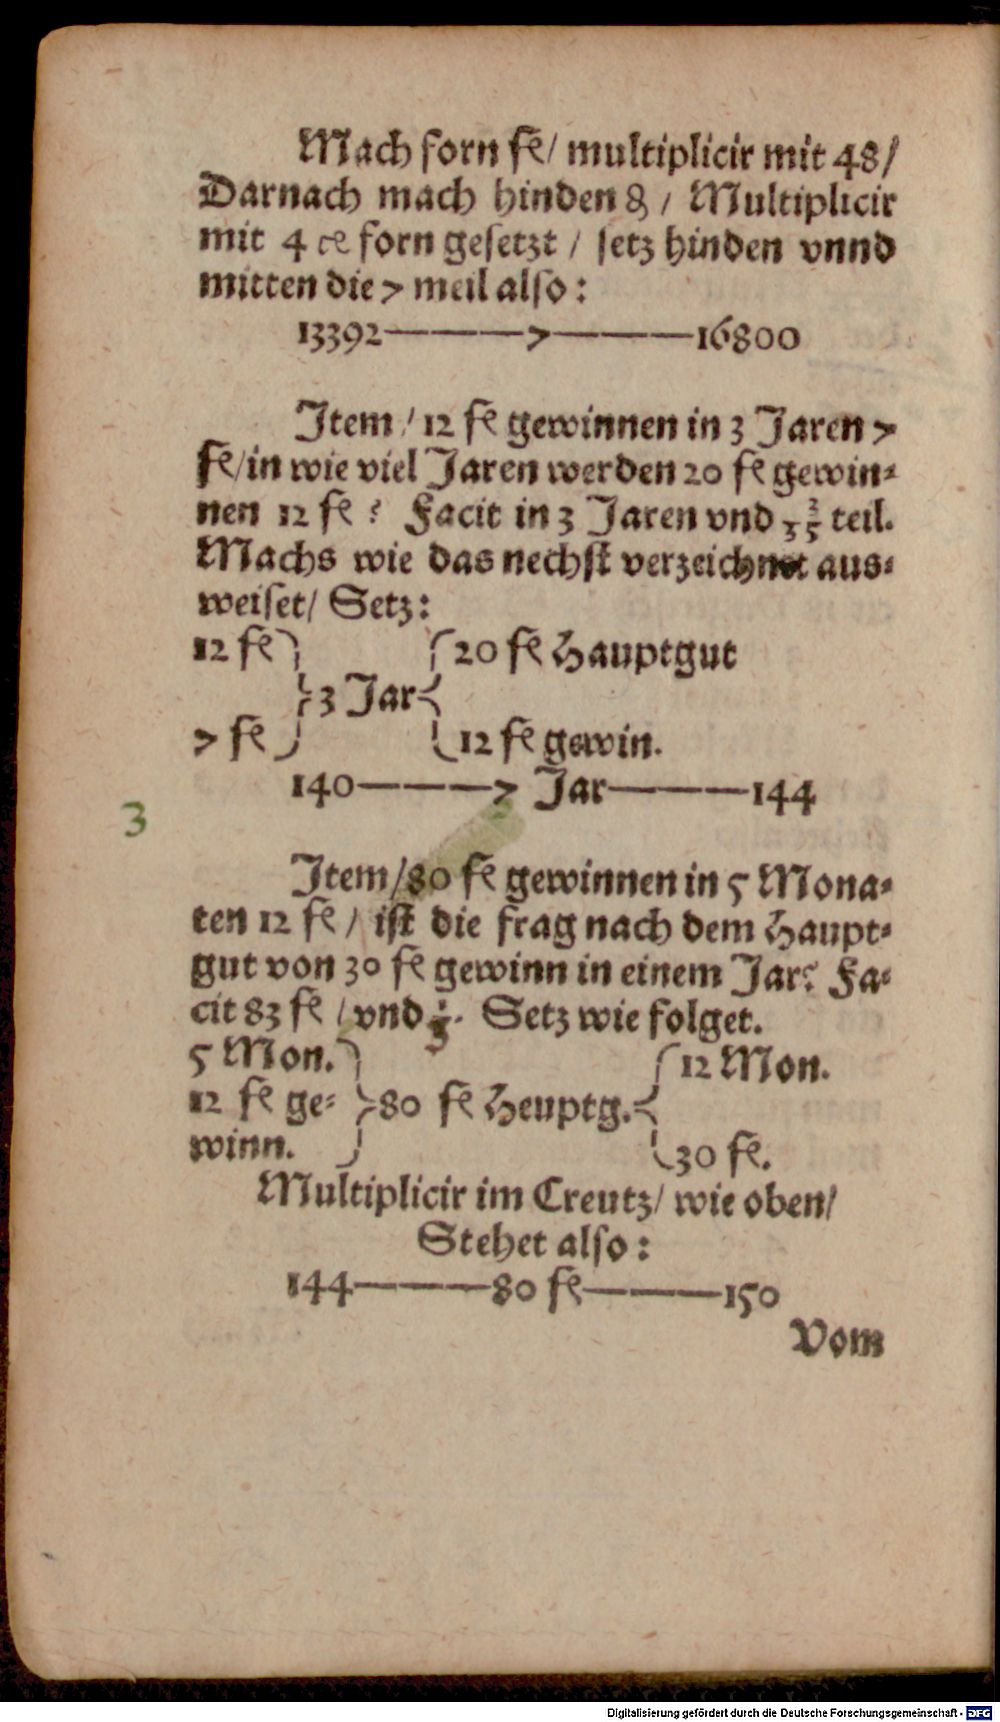 Mach forn fl/ multiplicir mit 48/
Darnach mach hinden ₰/ Multiplicir
mit 4 ce forn gesetzt / setz hinden vnnd
mitten die 7 meil also:
13392————7————16800
Item/ 12 fl gewinnen in 3 Jaren 7
fl/ in wie viel Jaren werden 20 fl gewin⸗
nen 12 fl? Facit in 3 Jaren vnd teil.
Machs wie das nechst verzeichnet aus⸗
weiset/ Setz:
12 fl } { 20 fl Hauptgut
}3 Jar{
7 fl } { 12 fl gewin.
140————7 Jar————144
3
Item/ 80 fl gewinnen in 5 Mona⸗
ten 12 fl/ ist die frag nach dem Haupt⸗
gut von 30 fl gewinn in einem Jar? Fa⸗
cit 83 fl/ vnd ⅓. Setz wie folget.
5 Mon. } { 12 Mon.
12 fl ge⸗ }80 fl Heuptg.{
winn. } { 30 fl.
Multiplicir im Creutz/ wie oben/
Stehet also:
144————80 fl————150
Vom
Digitalisierung gefördert durch die Deutsche Forschungsgemeinschaft - DFG